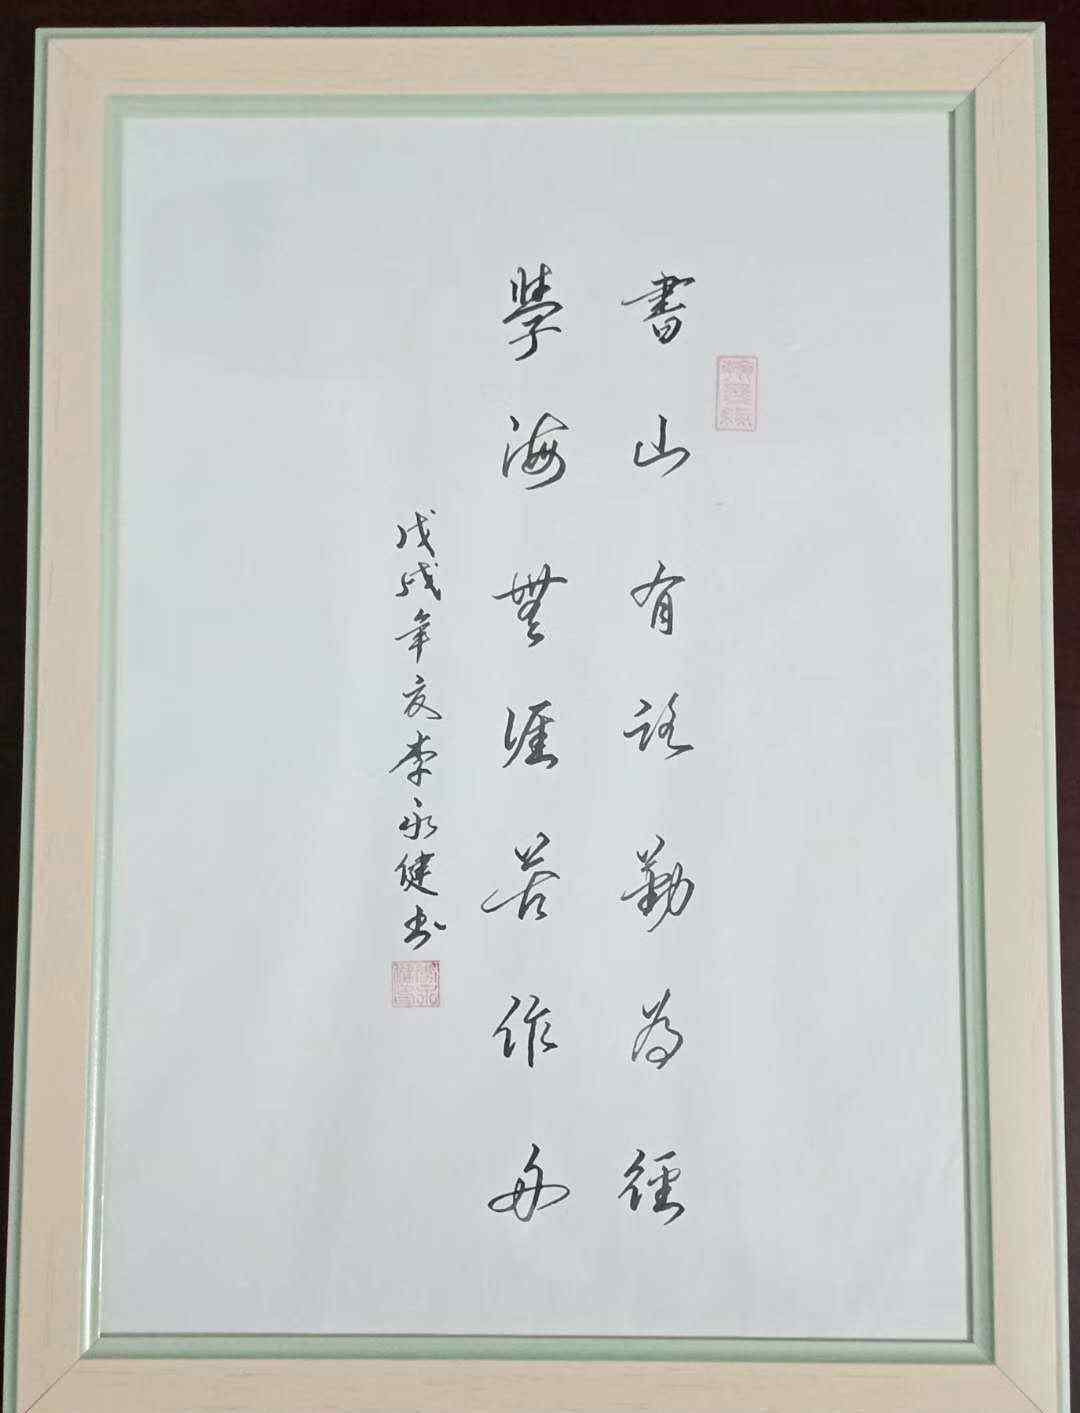 書山有路勤為徑
學海無涯苦作舟
戊戌年夏李永健书